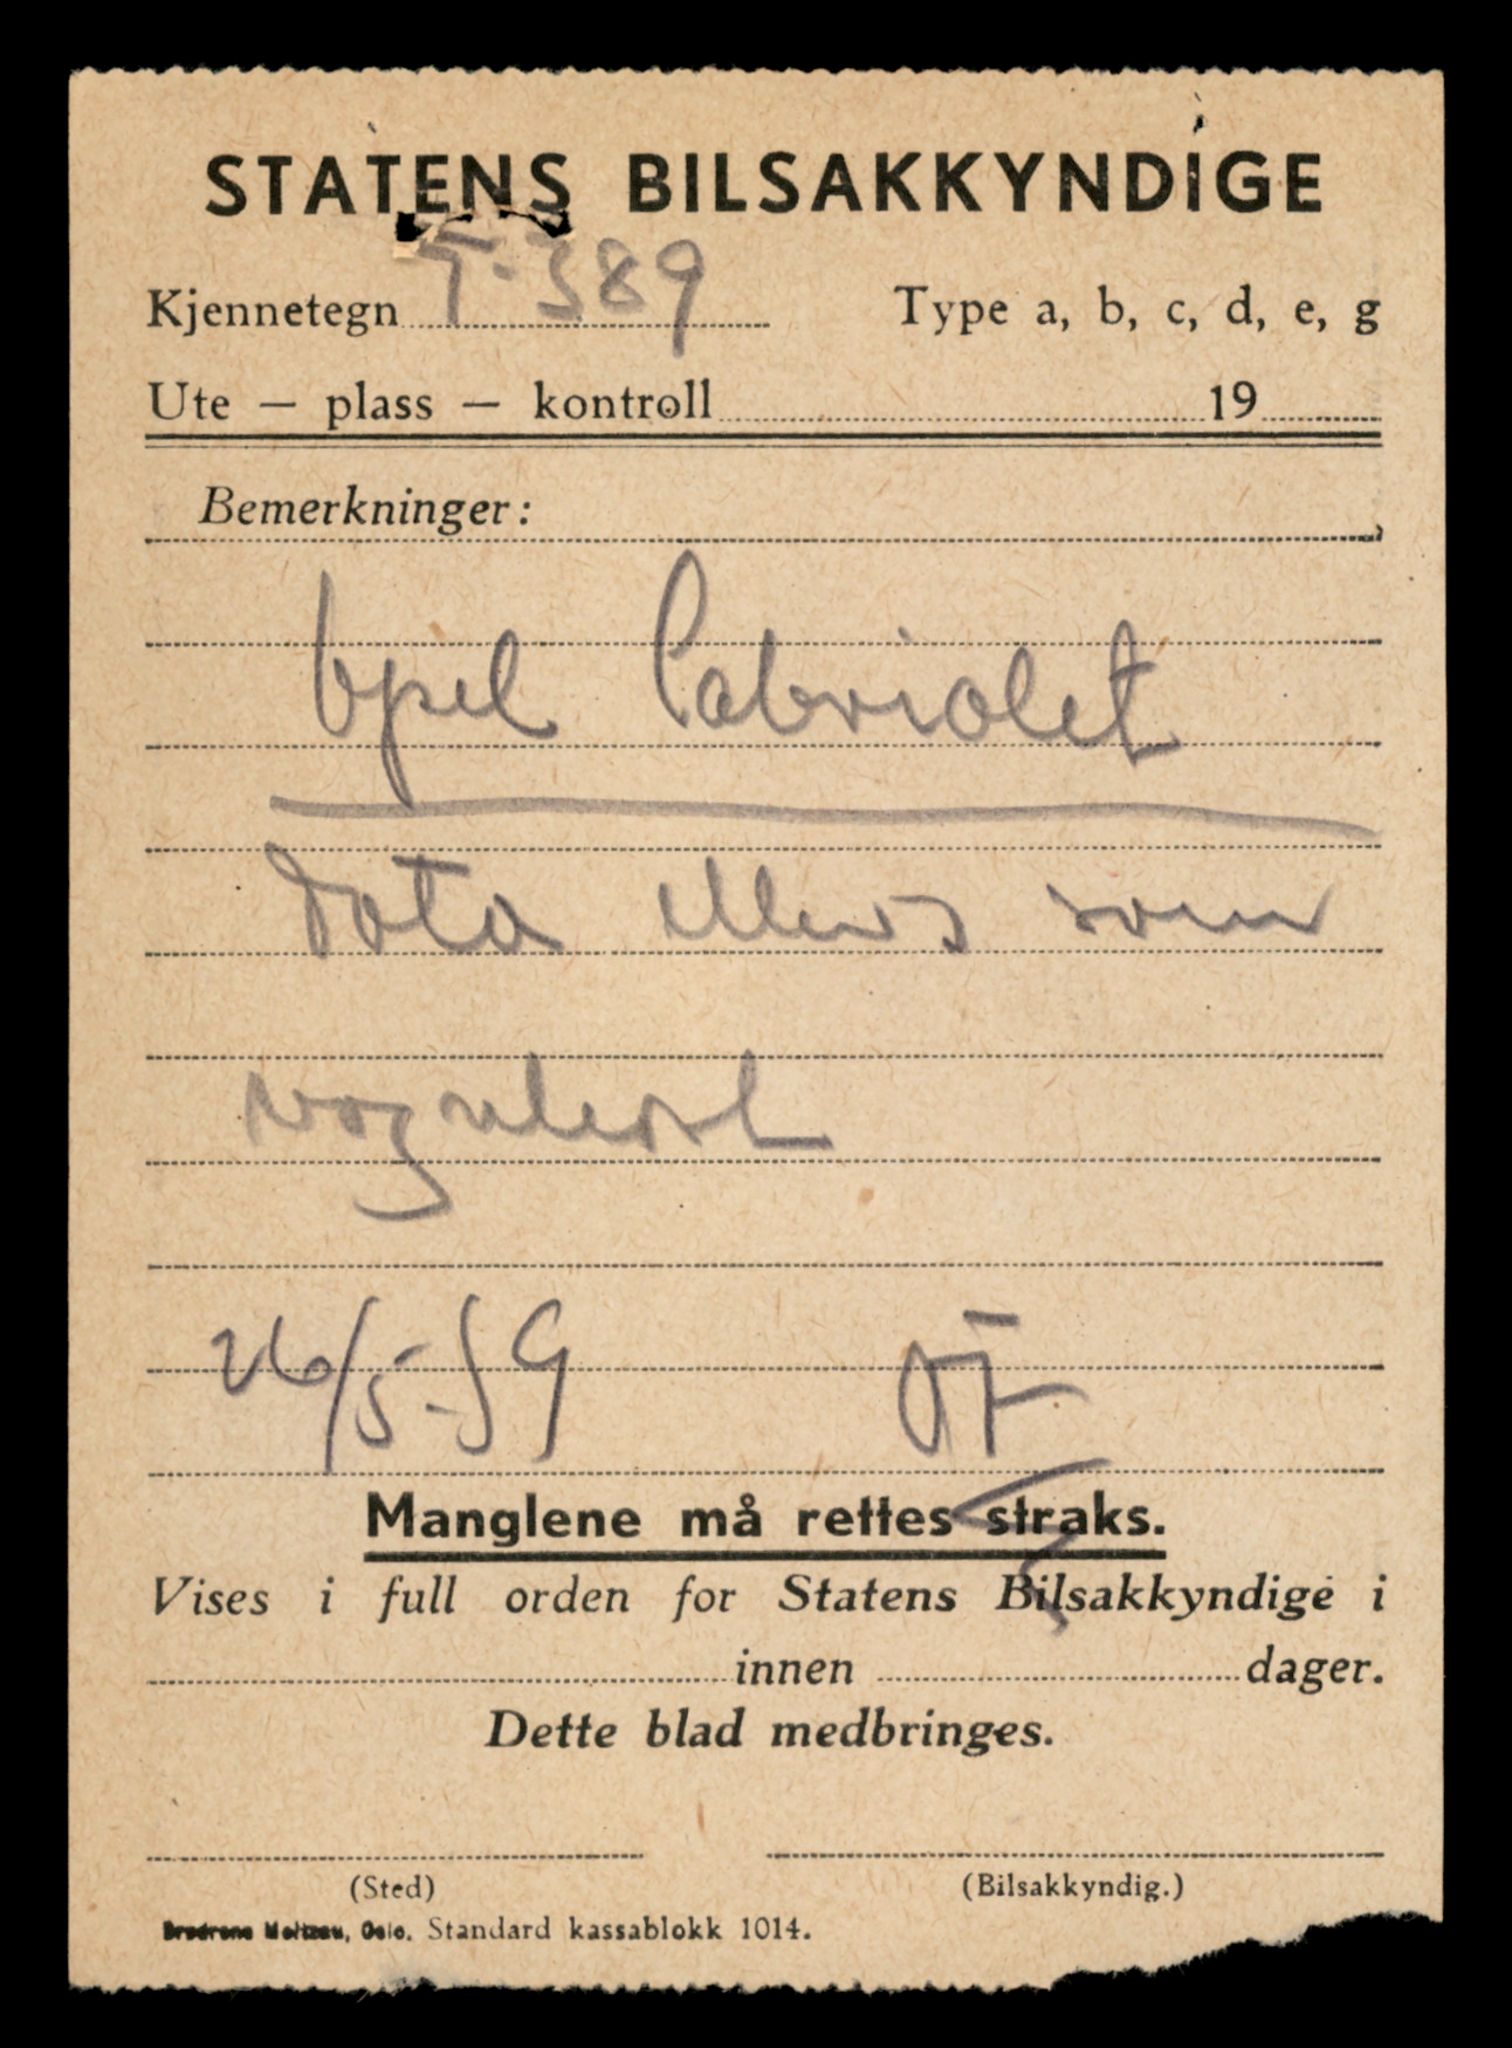 STATENS BILSAKKYNDIGE
Kjennetegn T-389 Type a, b, c, d, e, g
Ute — plass — kontroll 19
Bemerkninger:
Opel Cabriolet
Data ellers som
vognkort
26/5-59
Manglene må rettes straks.
Vises i full orden for Statens Bilsakkyndige i
innen dager.
Dette blad medbringes.
(Sted) (Bilsakkyndig.)
Brødrene Meltzau, Oslo. Standard kassablokk 1014.